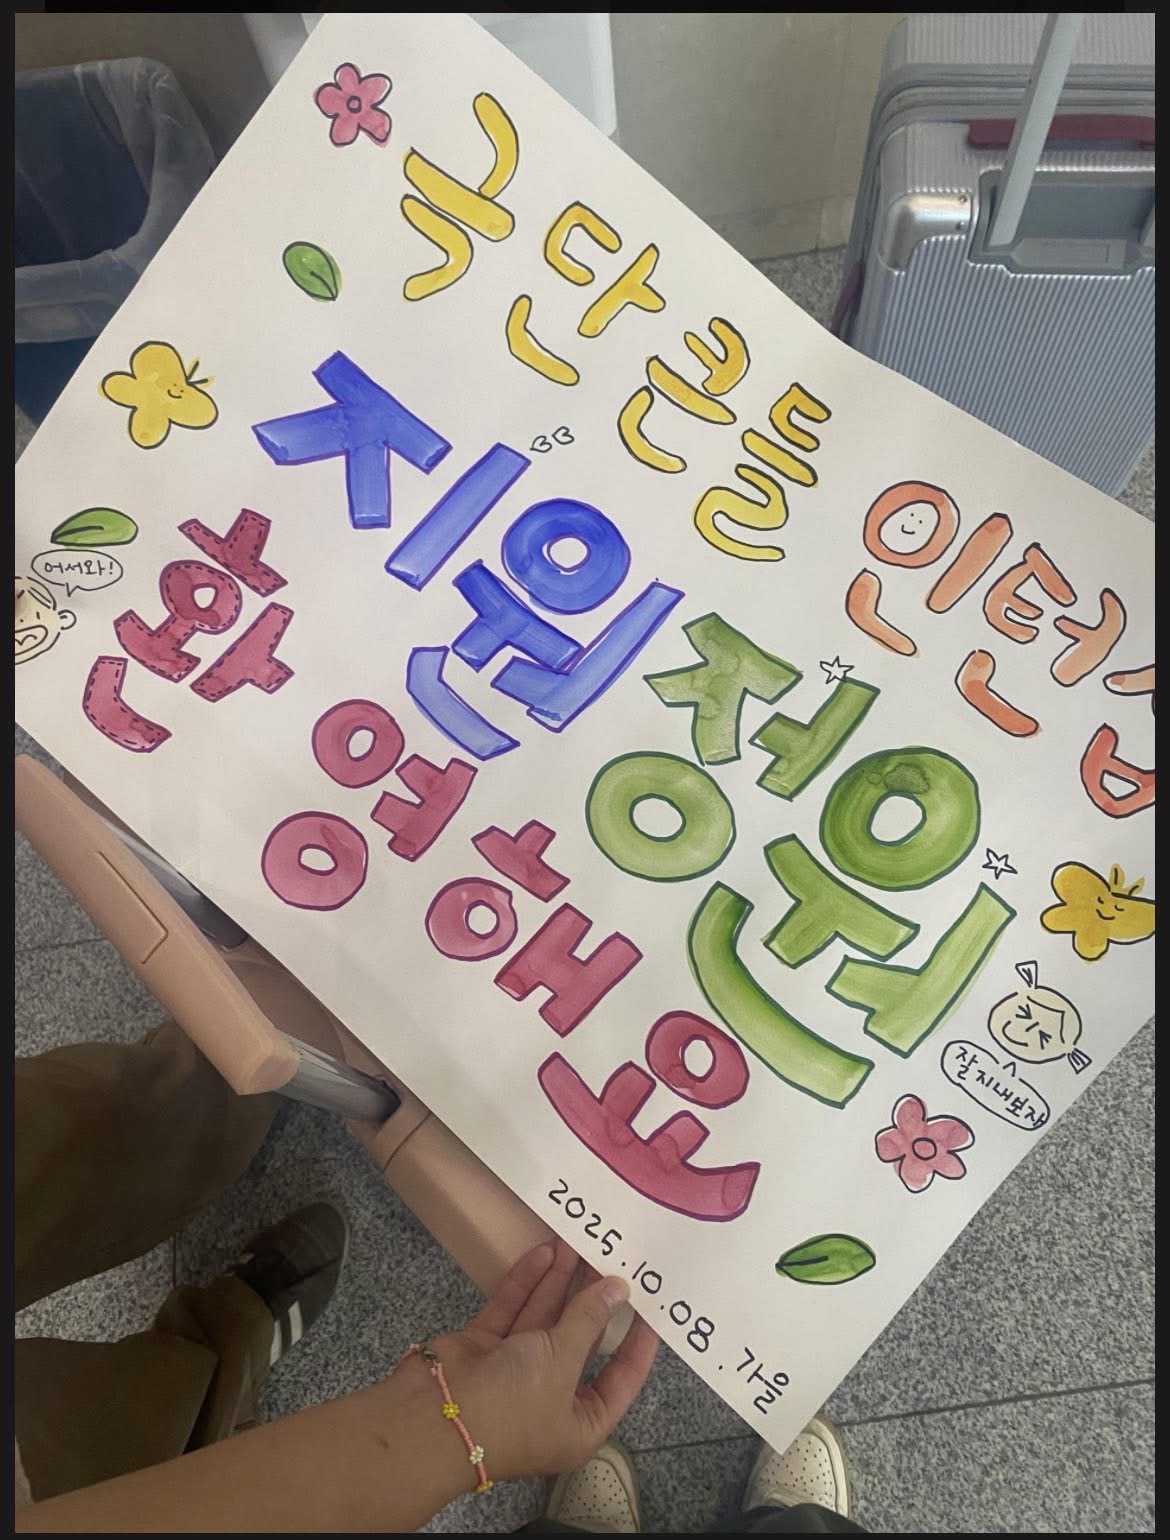 극단 큰들 인턴
지원 정원
환영해요
어서와!
잘 지내보자
2025.10.08. 가을